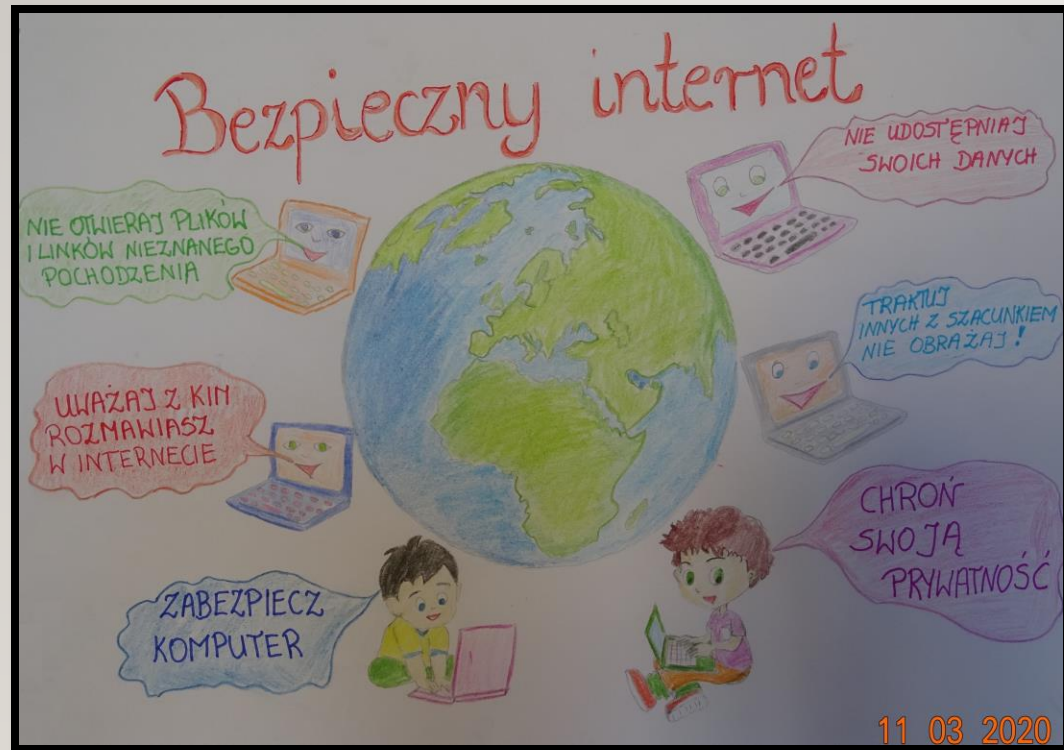 Bezpieczny internet
NIE OTWIERAJ PLIKÓW
I LINKÓW NIEZNANEGO
POCHODZENIA
NIE UDOSTĘPNIAJ
SWOICH DANYCH
TRAKTUJ
INNYCH Z SZACUNKIEM
NIE OBRAŻAJ!
UWAŻAJ Z KIM
ROZMAWIASZ
W INTERNECIE
CHROŃ
SWOJĄ
PRYWATNOŚĆ
ZABEZPIECZ
KOMPUTER
11 03 2020